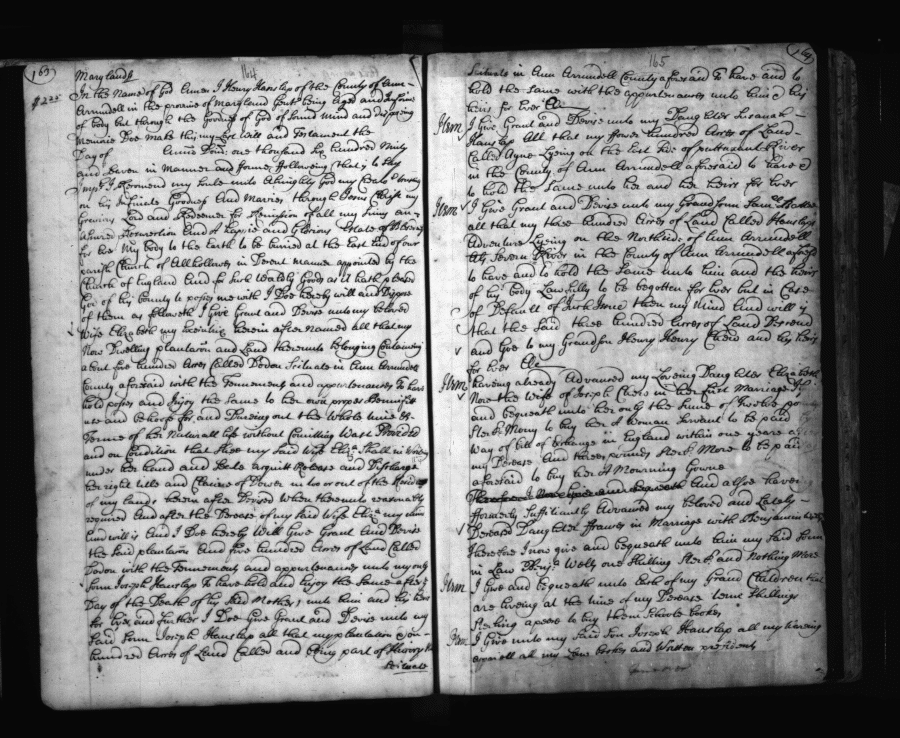 163
164
Maryland ss
In the Name of God Amen I Henry Hanslap of the County of Ann
Arrundell in the province of Maryland Gent: being Aged and Infirme
of body but through the Goodness of God of Sound Mind and disposing
Memorie Doe Make this my Last Will and Testament the
Day of Anno Dom: one thousand Six hundred Ninty
and Seven in Manner and forme following that is to Say
Imp: I Recommend my Soule unto Almighty God my Creator trusting
on his Infinite Goodness And Mercies through Jesus Christ my
Lord and Redeemer for Remission of all my Sins an
assured Resurrection And A happie and Glorious Estate of
for Ever My body to the Earth to be buried at the East End of our
parish Church of All Hallows in Decent manner appointed by the
Church of England And for Such Worldly Goods as it hath pleased
God of his bounty to posses me with I Doe hereby will and Dispose
of them as followeth I Give Grant and Devise unto my beloved
Wife Elizabeth my Executrix herein after Named all that my
Now Dwelling plantation and Land thereunto belonging Containing
about five hundred Acres Called Dodon Scituate in Ann Arrundell
County aforesaid with the Tennement and appurtenances To have
hold posses and Enjoy the Same to her own proper Benifitt
use and behoofe for and Dureing out the Whole time &
Terme of her Naturall life without Comitting Wast Provided
and on Condition that Shee my Said Wife Eliz: Shall in Writing
under her hand and Seale acquitt Release and Discharge
her right title and Claime of Dower in or out of the
of my lands herein after Devised When thereunto reasonably
required And after the Decease of my Said Wife Eliz: my
and will is And I Doe hereby Will Give Grant And Devise
the Said plantation And five hundred Acres of Land Called
Dodon with the Tennement and appurtenances unto my only
Sonn Joseph Hanslap To have hold and Enjoy the Same after
Day of the Death of his Said Mother, unto him and his heirs
for Ever and further I Doe Give Grant and Devise unto my
Said Sonn Joseph Hanslap all that my plantation
hundred Acres of Land Called and being part of
Scituate
165
Scituate in Ann Arrundell County aforesaid To have and to
hold the Same with the appurtenances unto him & his
heirs for Ever
Item I Give Grant and Devise unto my Daughter Susanah
Hanslap All that my fower hundred Acres of Land
Called Lyeing on the East Side of puttuxant River
in the County of Ann Arrundell aforesaid to have &
to hold the Same unto her and her heirs for Ever
Item I Give Grant and Devise unto my Grandsonn Sam:
all that my three hundred Acres of Land Called Hanslaps
Adventure Lyeing on the Northside of Ann Arrundell
Als Severn River in the County of Ann Arrundell aforesd
to have and to hold the Same unto him and the heirs
of his body Lawfully to be begotten for Ever but in Case
of Default of Such Issue then my Mind and will is
that the Said three hundred Acres of Land Descend
and Goe to my Grandson Henry Henry Chew and his heirs
for Ever
Item haveing already Advanced my Loveing Daughter Elizabeth
Now the Wife of Joseph Chew in her first Marriage I
and bequeath unto her only the Sume of Twelve
Sterl: Mony to buy her A Woman Servant to be paid
Way of bill of Exchange in England within one yeare
my Decease And three pounds Sterl: More to be paid
aforesaid to buy her A Mourning Gowne
And alsoe haveing
formerly Sufficiently Advanced my beloved and Lately
Deceased Daughter Frances in Marriage with Benjamin
Therefore I now give and bequeath unto him my Said Sonn
in Law Benj: one Shilling Sterl: and Nothing More
Item I Give and bequeath unto Each of my Grand Children that
are liveing at the time of my Decease tenn Shillings
Sterling apeece to buy them Schoole bookes
Item I Give unto my Said Son Joseph Hanslap all my wearing
apparell all my Law bookes and Written presidents